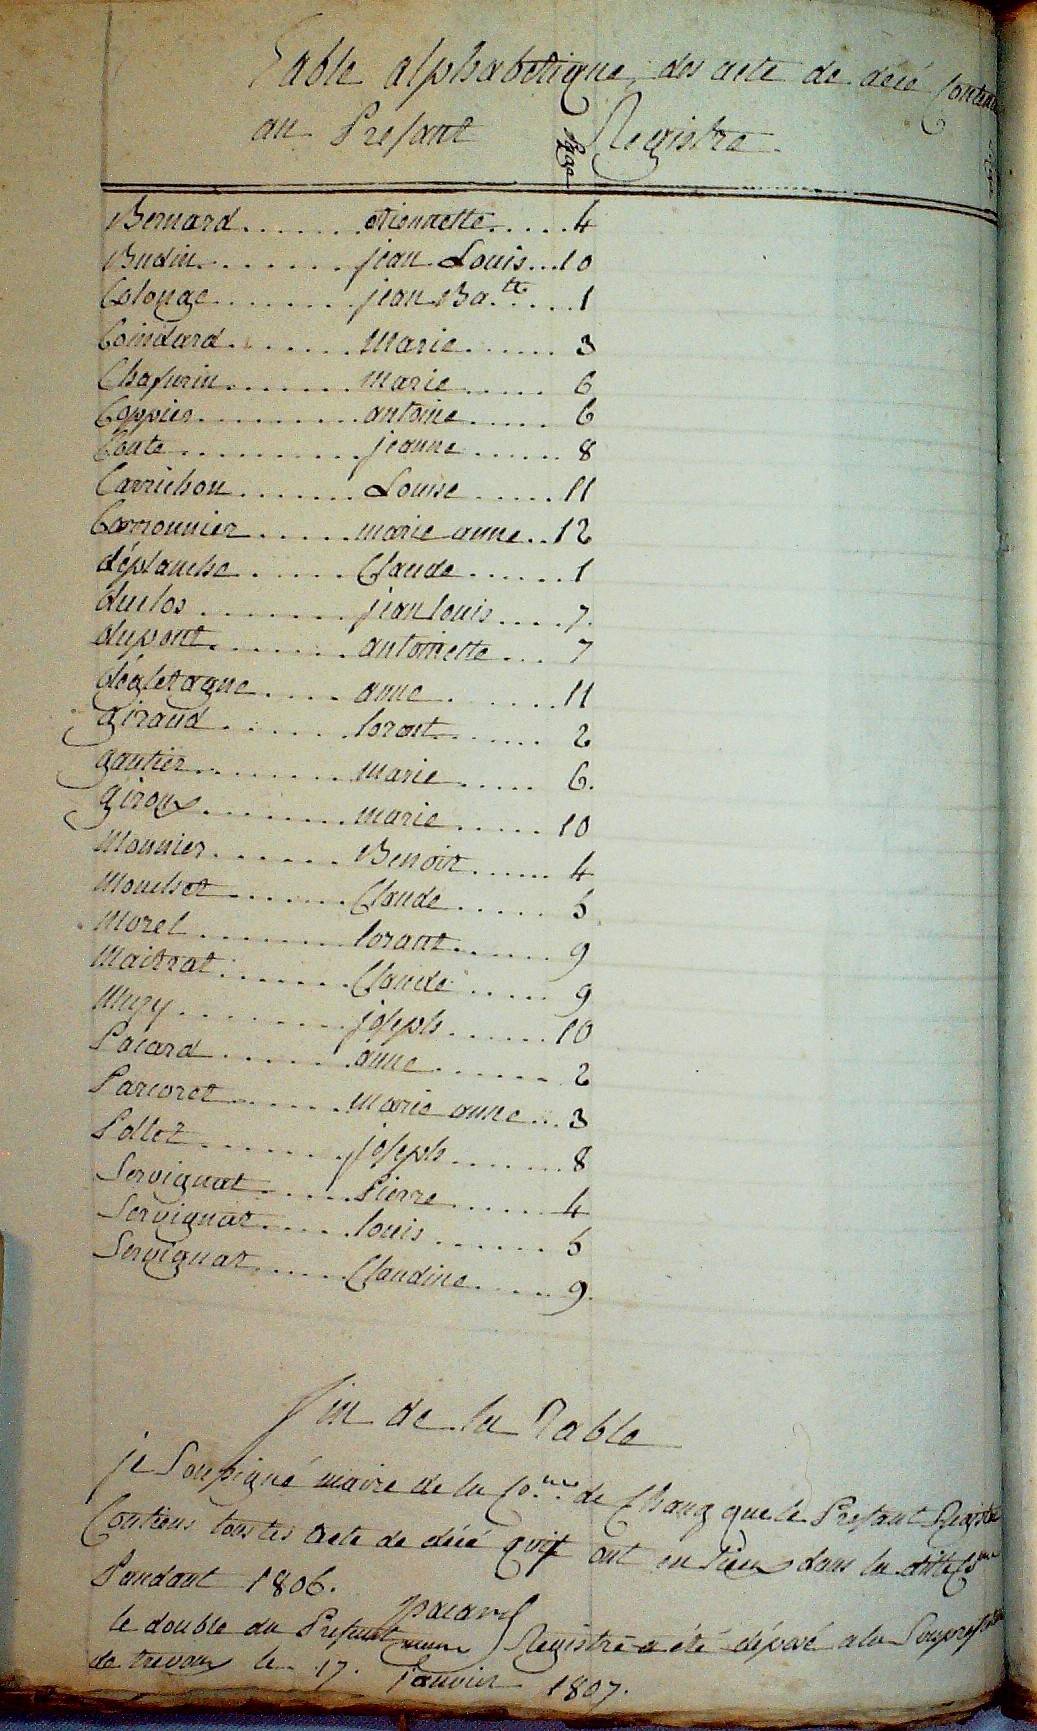 Table alphabetique des acte de décé Contenu
au Presant Registre
Page
Bernard etiennette 4
Budin jean Louis 10
Colonge jean Ba.te 1
Coindard Marie 3
Chaf marie 6
Coppier antoine 6
Conte jeanne 8
Carrichon Louise 11
marie anne 12
déplanche Claude 1
duclos jean louis 7.
dupont antoinette 7
dégletagne anne 11
giraud lorant 2
gautier marie 6.
giroux marie 10
Monnier Benoit 4
Mouchet Claude 5
Morel lorant 9
Maitrat Claude 9
Mury joseph 10
Pacard anne 2
Parcoret marie anne 3
Pollet joseph 8
Servignat Pierre 4
Servignat louis 5
Servignat Claudine 9.
fin de la Table
je Soussigné maire de la Co.ne de Chanz que le Presant Registre
Contiens tous les acte de décé quit ont eu Lieux dans la ditte Co.ne
Pandant 1806.
Pacard
maire
le double du Presant Registre a été déposé a la Souspref
de trevoux le 17. janvier 1807.